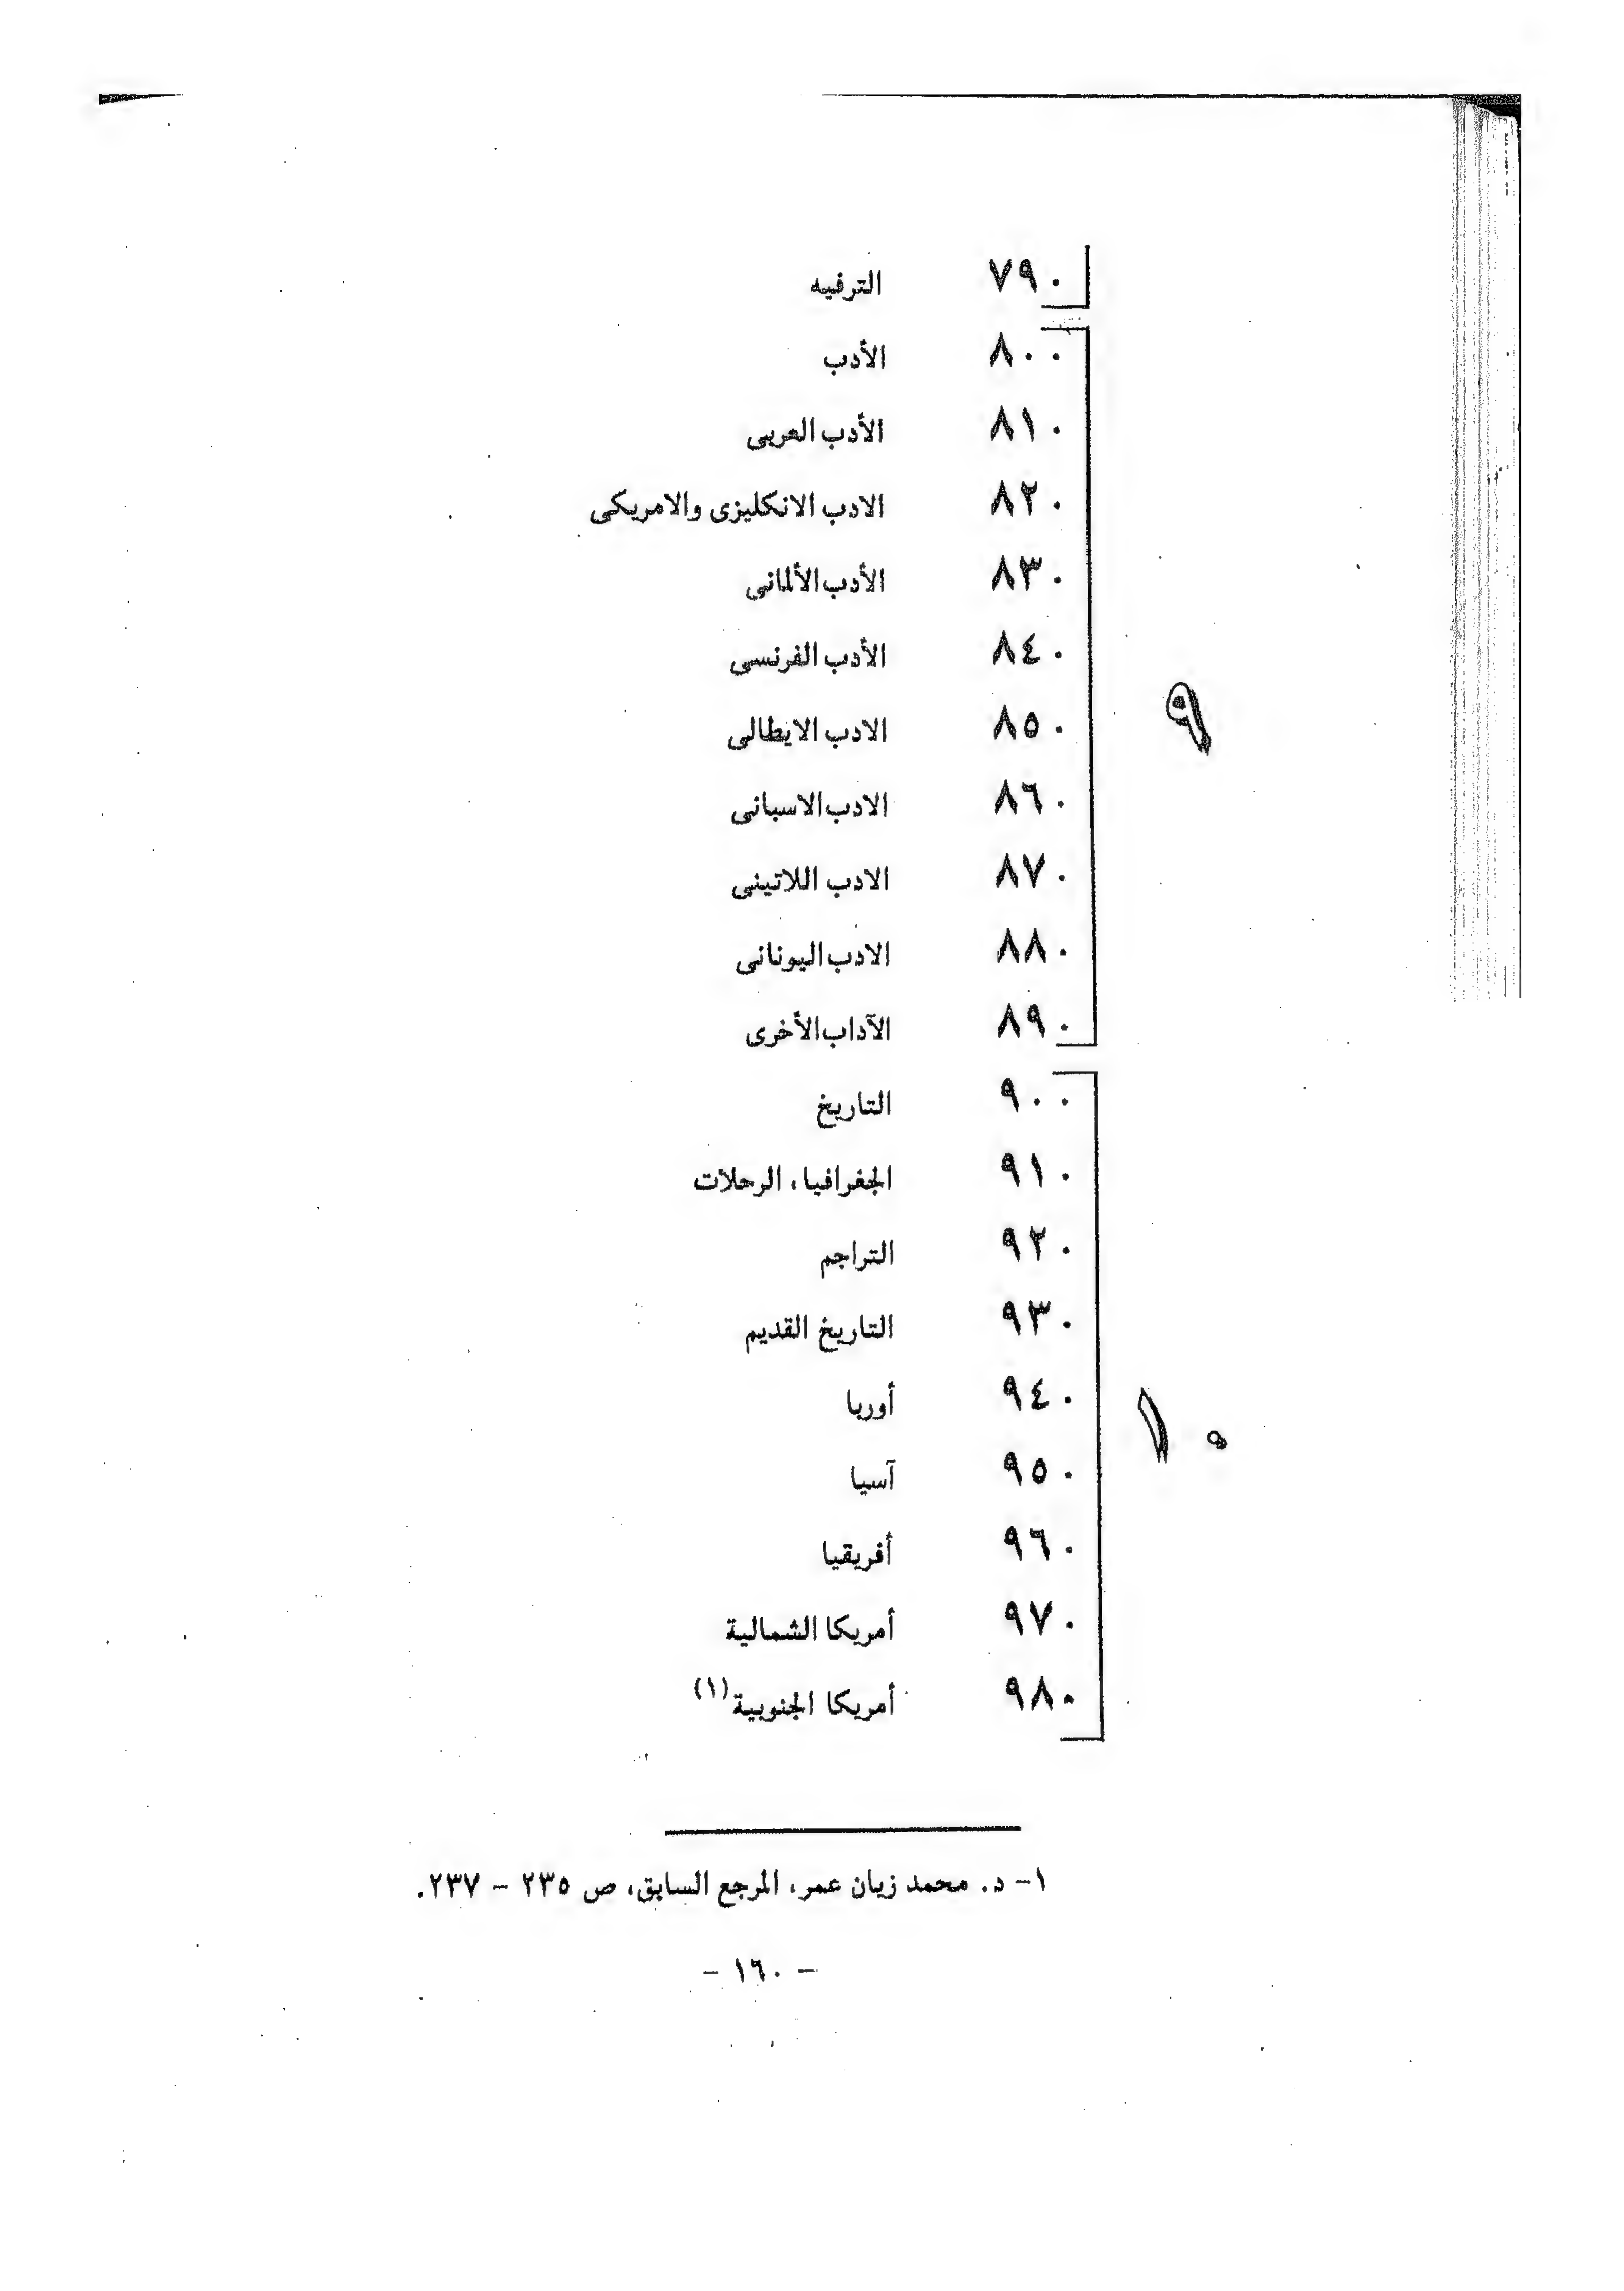 ٧٩٠ الترفيه
٨٠٠ الأدب
٨١٠ الأدب العربى
٨٢٠ الادب الانكليزى والامريكى
٨٣٠ الأدب الألمانى
٨٤٠ الأدب الفرنسى
٩
٨٥٠ الادب الايطالى
٨٦٠ الادب الاسبانى
٨٧٠ الادب اللاتينى
٨٨٠ الادب اليونانى
٨٩٠ الآداب الأخرى
٩٠٠ التاريخ
٩١٠ الجغرافيا، الرحلات
٩٢٠ التراجم
٩٣٠ التاريخ القديم
٩٤٠ أوربا
١٠
٩٥٠ آسيا
٩٦٠ أفريقيا
٩٧٠ أمريكا الشمالية
٩٨٠ أمريكا الجنوبية(١)
١- د. محمد زيان عمر، المرجع السابق، ص ٢٣٥ - ٢٣٧.
- ١٦٠ -